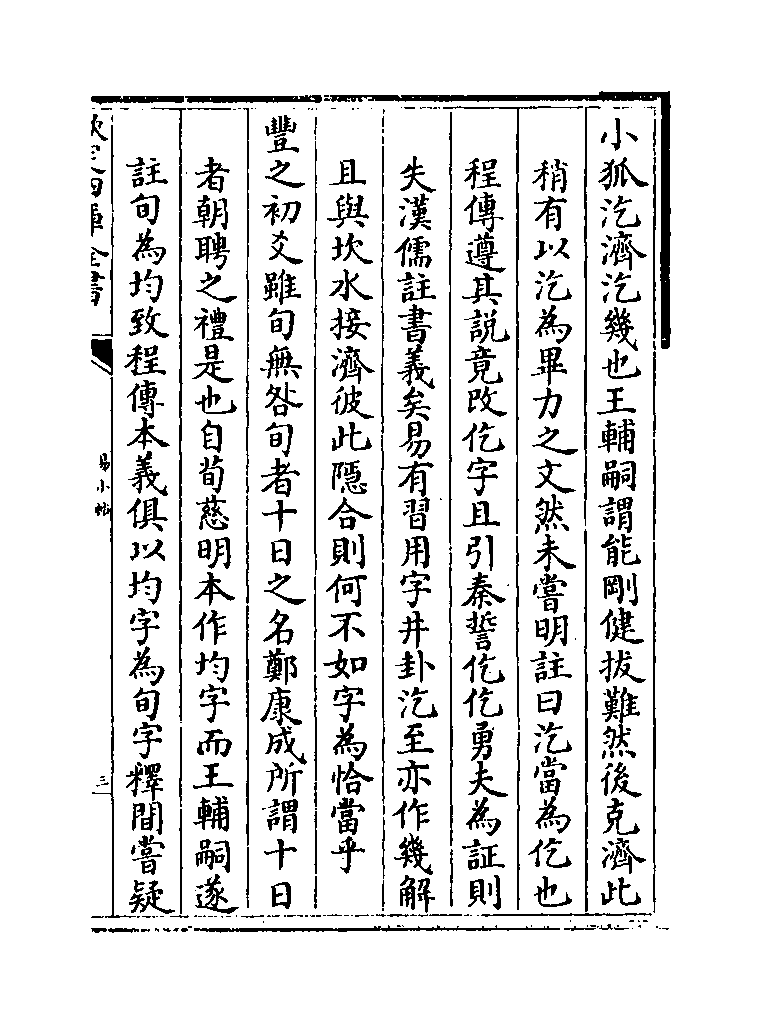 小狐汔濟汔幾也王輔嗣謂能剛健拔難然後克濟此
稍有以汔為畢力之文然未嘗明註曰汔當為仡也
程傳遵其説竟改仡字且引秦誓仡仡勇夫為証則
失漢儒註書義矣易有習用字井卦汔至亦作幾解
且與坎水接濟彼此隱合則何不如字為恰當乎
豐之初爻雖旬無咎旬者十日之名鄭康成所謂十日
者朝聘之禮是也自荀慈明本作均字而王輔嗣遂
註旬為均致程傳本義俱以均字為旬字釋間嘗疑
欽定四庫全書
易小帖
三